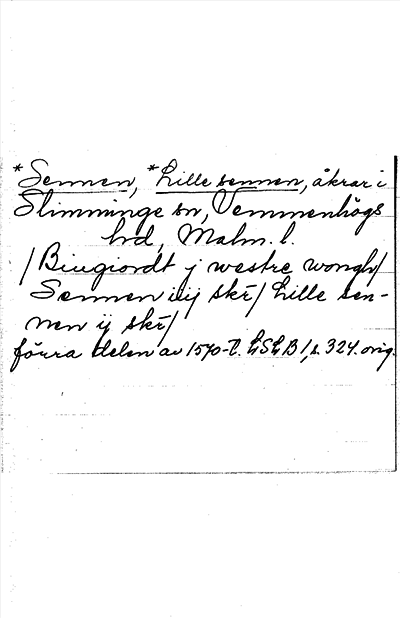 *Sennen, *Lille sennen, åkrar i
Slimminge sn, Vemmenhögs
hd, Malm. l.
/Biugiordt j westre wongh/
Sennen iiij skr/ Lille sen-
nen ij skr/
förra delen av 1570-t. LSLB 1, s. 324. orig.